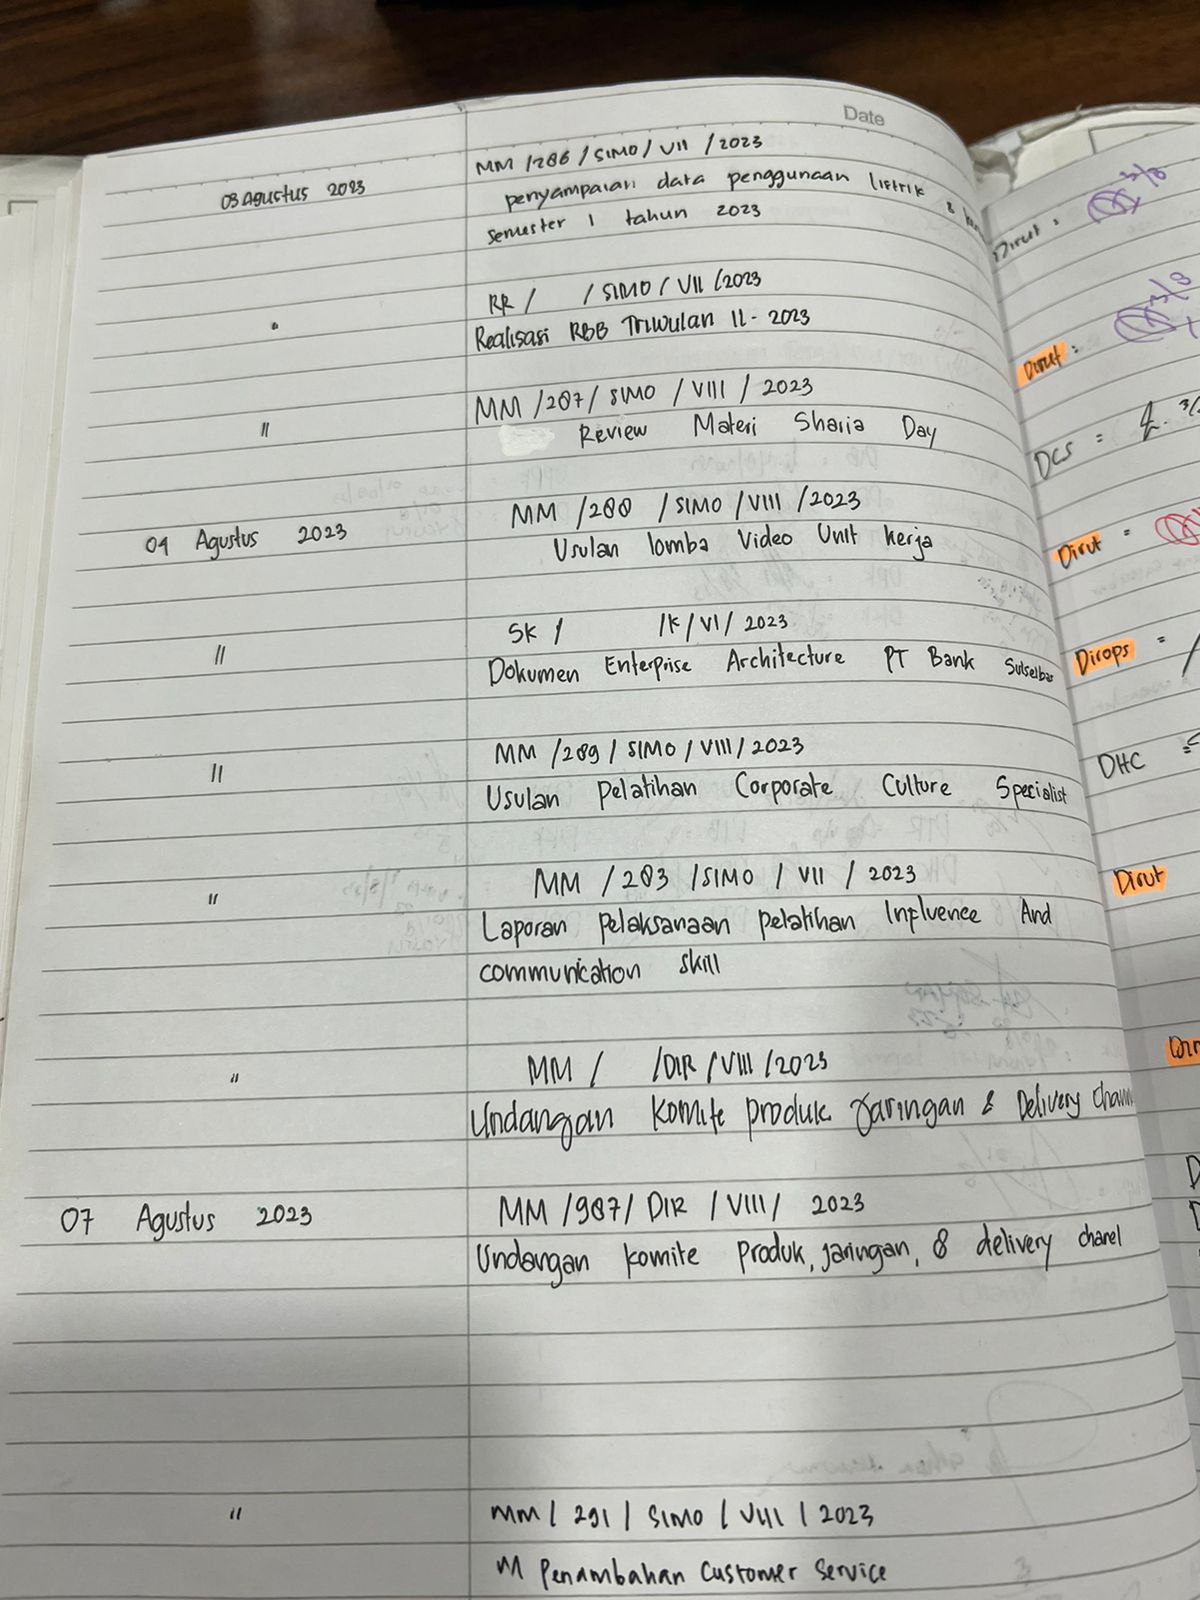 Date
03 Agustus 2023
MM / 286 / SIMO / VII / 2023
penyampaian data penggunaan listrik &
semester 1 tahun 2023
Dirut : 3/8
"
RR / / SIMO / VII / 2023
Realisasi RBB Triwulan II - 2023
Dirut : 3/8
"
MM / 287 / SIMO / VIII / 2023
Review Materi Sharia Day
DCS =
04 Agustus 2023
MM / 288 / SIMO / VIII / 2023
Usulan lomba Video Unit kerja
Dirut =
"
SK / / K / VI / 2023
Dokumen Enterprise Architecture PT Bank Sulselbar
Dirops =
"
MM / 289 / SIMO / VIII / 2023
Usulan Pelatihan Corporate Culture Specialist
DHC =
"
MM / 283 / SIMO / VII / 2023
Laporan pelaksanaan pelatihan Influence And
communication skill
Dirut
"
MM / / DIR / VIII / 2023
Undangan Komite produk Jaringan & Delivery
07 Agustus 2023
MM / 987 / DIR / VIII / 2023
Undangan komite produk, jaringan, & delivery chanel
"
MM / 291 / SIMO / VIII / 2023
M Penambahan Customer Service